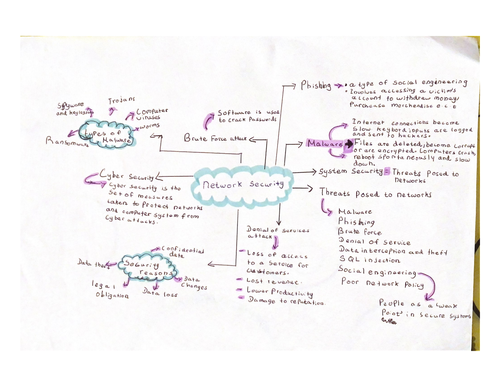 Phishing
a type of social engineering
Involves accessing a victim's
account to withdraw money/
Purchase merchandise e.t.c
Spyware
and keylogg
Trojans
Computer
viruses
worms
types of
malware
Ransomware
Software is used
to crack Passwords
Brute Force attack
Internet connections become
slow keybord inputs are logged
and sent to hackers.
Malware
Files are deleted, become corrupt
or are encrypted. Computers crash,
reboot spontaneously and slow
down.
System Security
Threats Posed to
networks
Cyber Security
Cyber security is the
Set of measures
taken to Protect networks
and computer system from
Cyber attacks.
Network Security
Threats Posed to networks
Malware
Phishing
Brute force
Denial of service
Data interception and theft
SQL injection
Social engineering
Poor network Policy
People as a weak
Point in secure systems
Denial of services
attack
Loss of access
to a service for
customers.
Lost revenue.
Lower Productivity
Damage to reputation.
Confidential
data
Data theft
Security
reasons
Data
changes
legal
obligation
Data loss